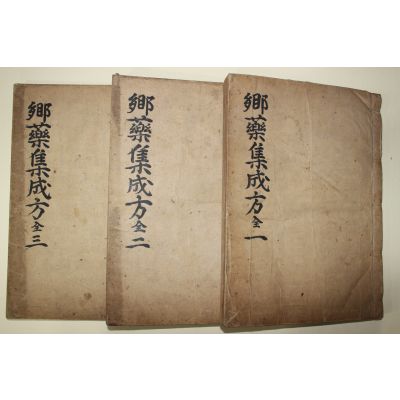 鄉藥集成方 全 一
鄉藥集成方 全 二
鄉藥集成方 全 三